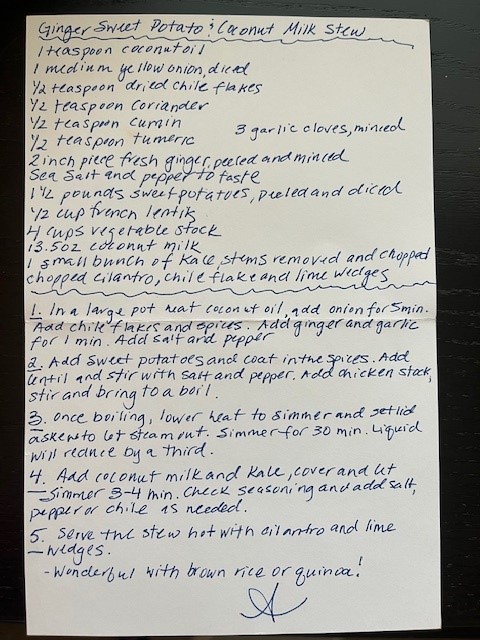 Ginger Sweet Potato & Coconut Milk Stew
1 teaspoon coconut oil
1 medium yellow onion, diced
1/2 teaspoon dried chile flakes
1/2 teaspoon coriander
1/2 teaspoon cumin
1/2 teaspoon tumeric
3 garlic cloves, minced
2 inch piece fresh ginger, peeled and minced
Sea salt and pepper to taste
1 1/2 pounds sweet potatoes, peeled and diced
1/2 cup french lentils
4 cups vegetable stock
13.5oz coconut milk
1 small bunch of kale, stems removed and chopped
chopped cilantro, chile flake and lime wedges
1. In a large pot heat coconut oil, add onion for 5 min.
Add chile flakes and spices. Add ginger and garlic
for 1 min. Add salt and pepper
2. Add sweet potatoes and coat in the spices. Add
lentil and stir with salt and pepper. Add chicken stock,
stir and bring to a boil.
3. Once boiling, lower heat to simmer and set lid
askew to let steam out. Simmer for 30 min. Liquid
will reduce by a third.
4. Add coconut milk and kale, cover and let
simmer 3-4 min. Check seasoning and add salt,
pepper or chile as needed.
5. Serve the stew hot with cilantro and lime
wedges.
- Wonderful with brown rice or quinoa!
A